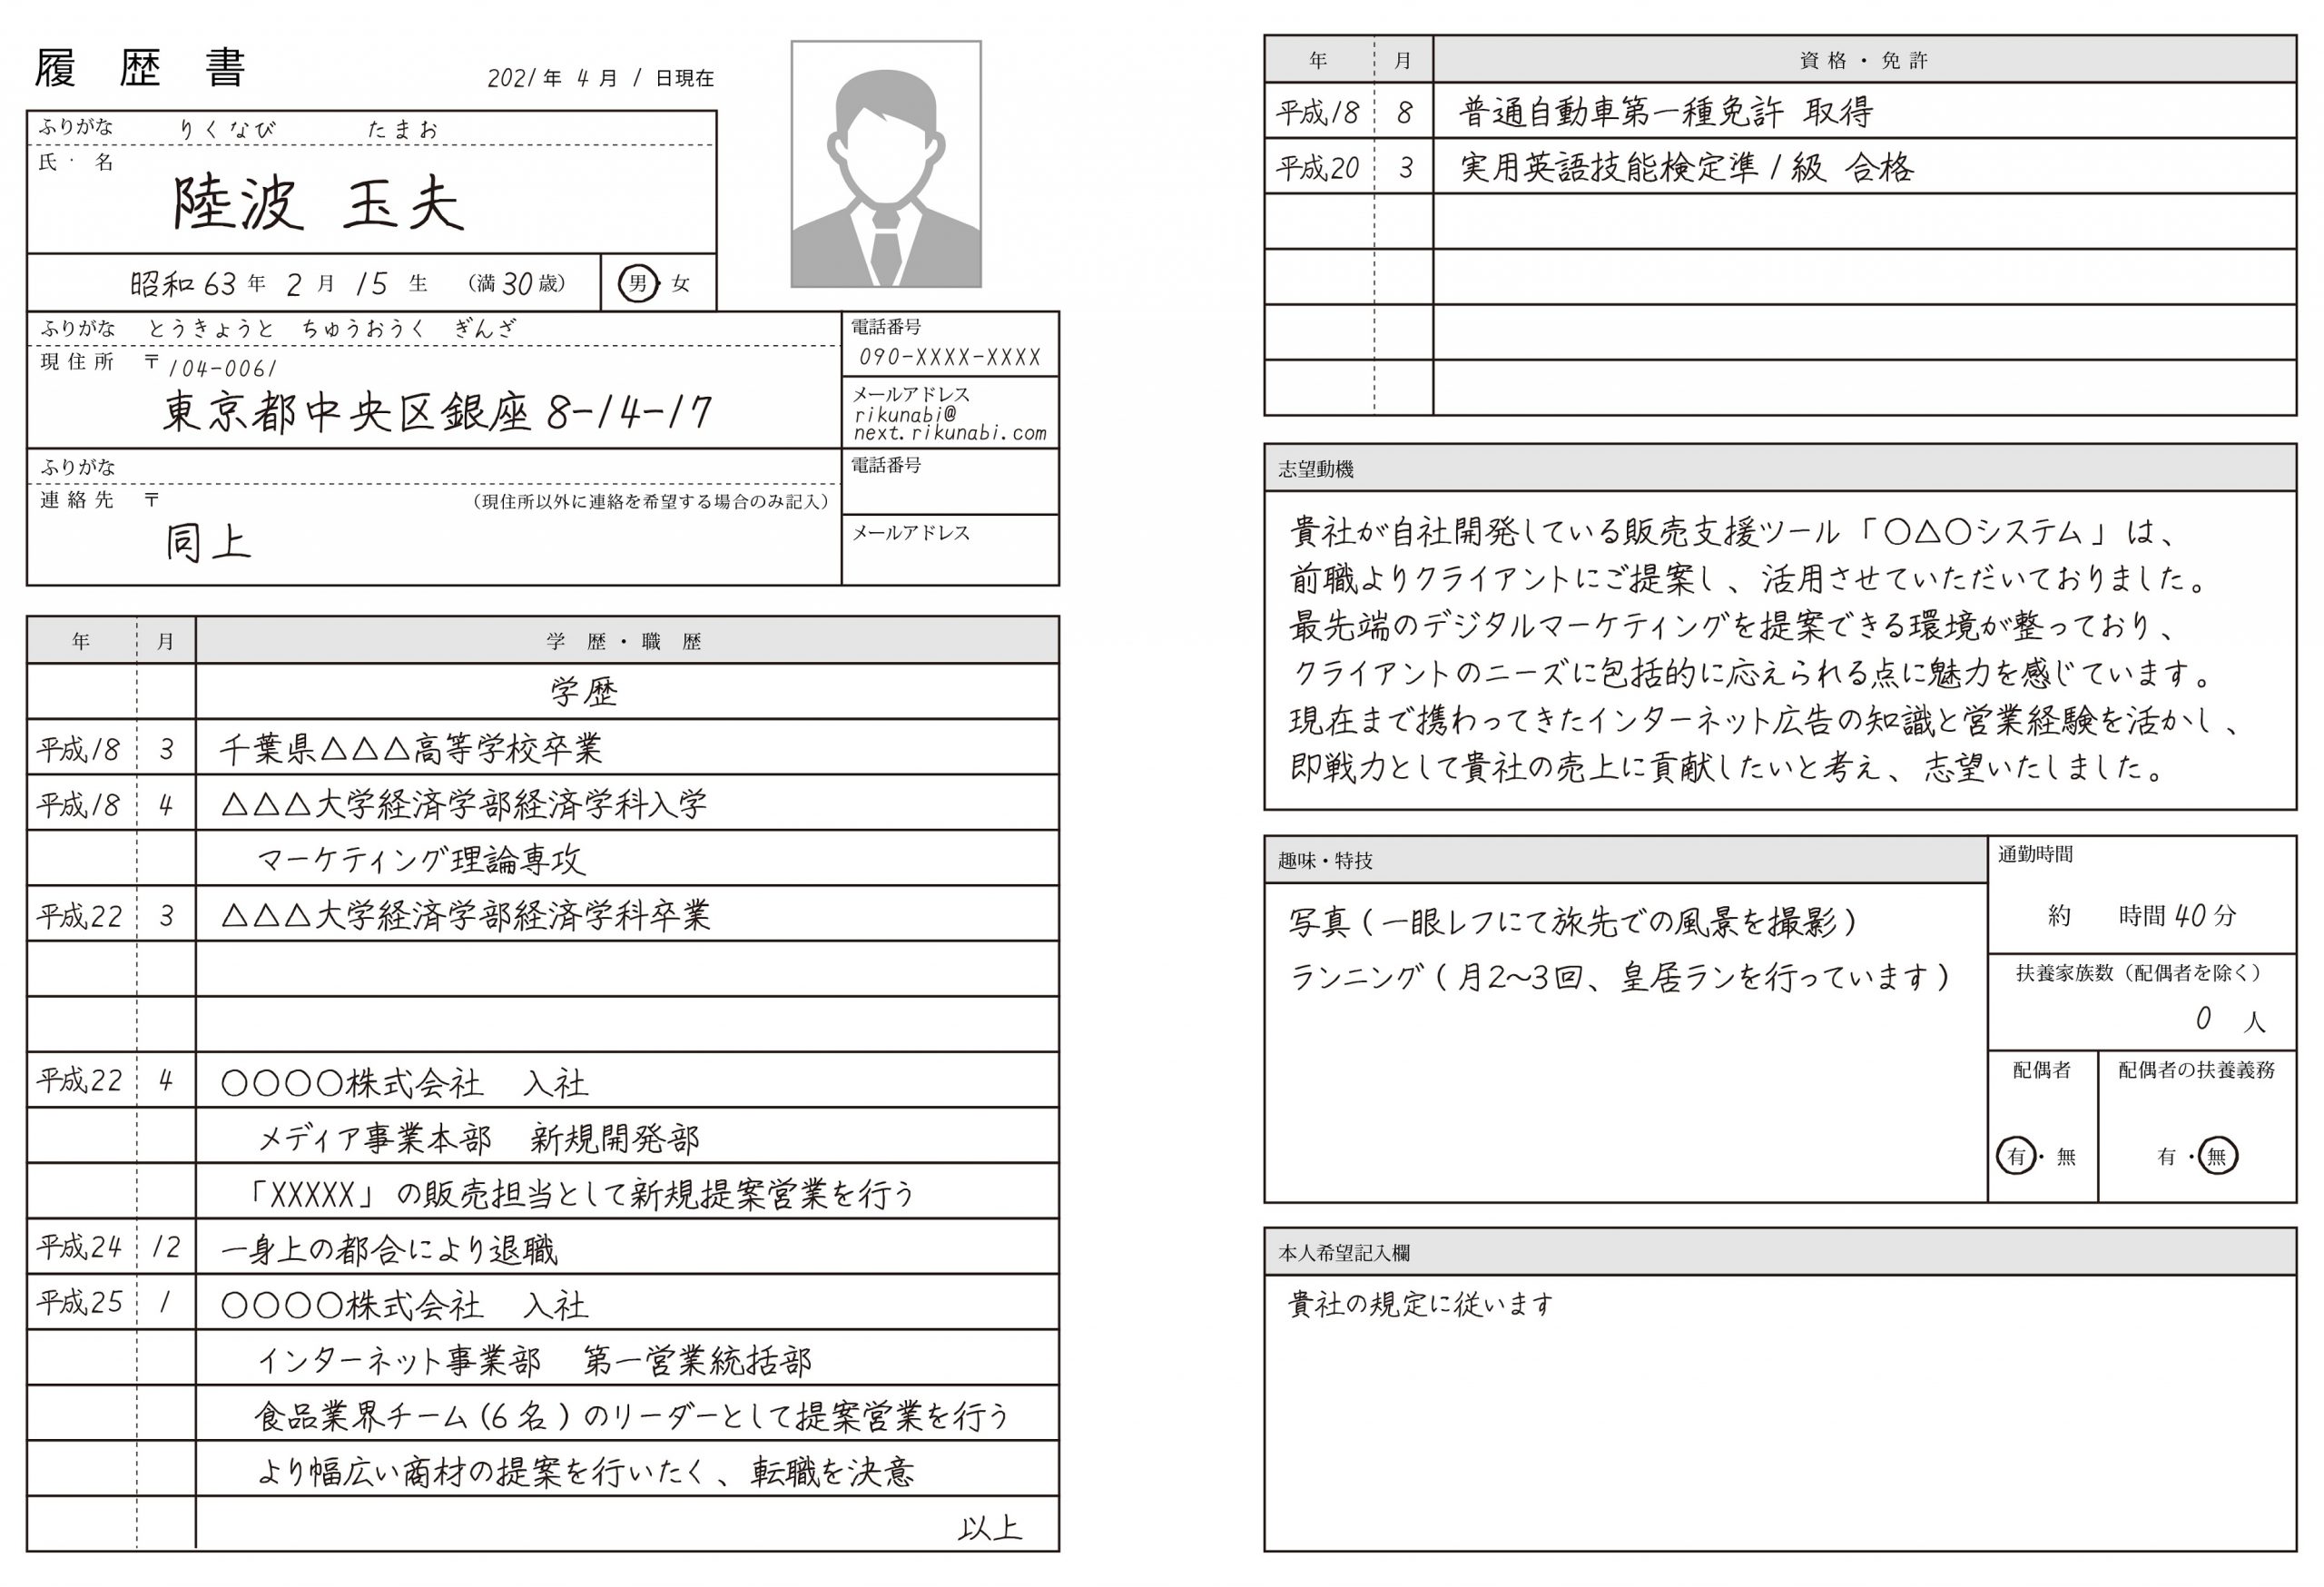 履歴書
2021年 4月 1日現在
ふりがな りくなび たまお
氏・名
陸波 玉夫
昭和63年 2月 15生 (満30歳) 男・女
ふりがな とうきょうと ちゅうおうく ぎんざ
現住所 〒104-0061
東京都中央区銀座8-14-17
電話番号
090-XXXX-XXXX
メールアドレス
rikunabi@
next.rikunabi.com
ふりがな
連絡先 〒 (現住所以外に連絡を希望する場合のみ記入)
同上
電話番号
メールアドレス
年 月 学歴・職歴
学歴
平成18 3 千葉県△△△高等学校卒業
平成18 4 △△△大学経済学部経済学科入学
マーケティング理論専攻
平成22 3 △△△大学経済学部経済学科卒業
平成22 4 ○○○○株式会社 入社
メディア事業本部 新規開発部
「XXXXX」の販売担当として新規提案営業を行う
平成24 12 一身上の都合により退職
平成25 1 ○○○○株式会社 入社
インターネット事業部 第一営業統括部
食品業界チーム(6名)のリーダーとして提案営業を行う
より幅広い商材の提案を行いたく、転職を決意
以上
年 月 資格・免許
平成18 8 普通自動車第一種免許 取得
平成20 3 実用英語技能検定準1級 合格
志望動機
貴社が自社開発している販売支援ツール「○△○システム」は、
前職よりクライアントにご提案し、活用させていただいておりました。
最先端のデジタルマーケティングを提案できる環境が整っており、
クライアントのニーズに包括的に応えられる点に魅力を感じています。
現在まで携わってきたインターネット広告の知識と営業経験を活かし、
即戦力として貴社の売上に貢献したいと考え、志望いたしました。
趣味・特技
写真(一眼レフにて旅先での風景を撮影)
ランニング(月2〜3回、皇居ランを行っています)
通勤時間
約 時間40分
扶養家族数(配偶者を除く)
0 人
配偶者
有・無
配偶者の扶養義務
有・無
本人希望記入欄
貴社の規定に従います